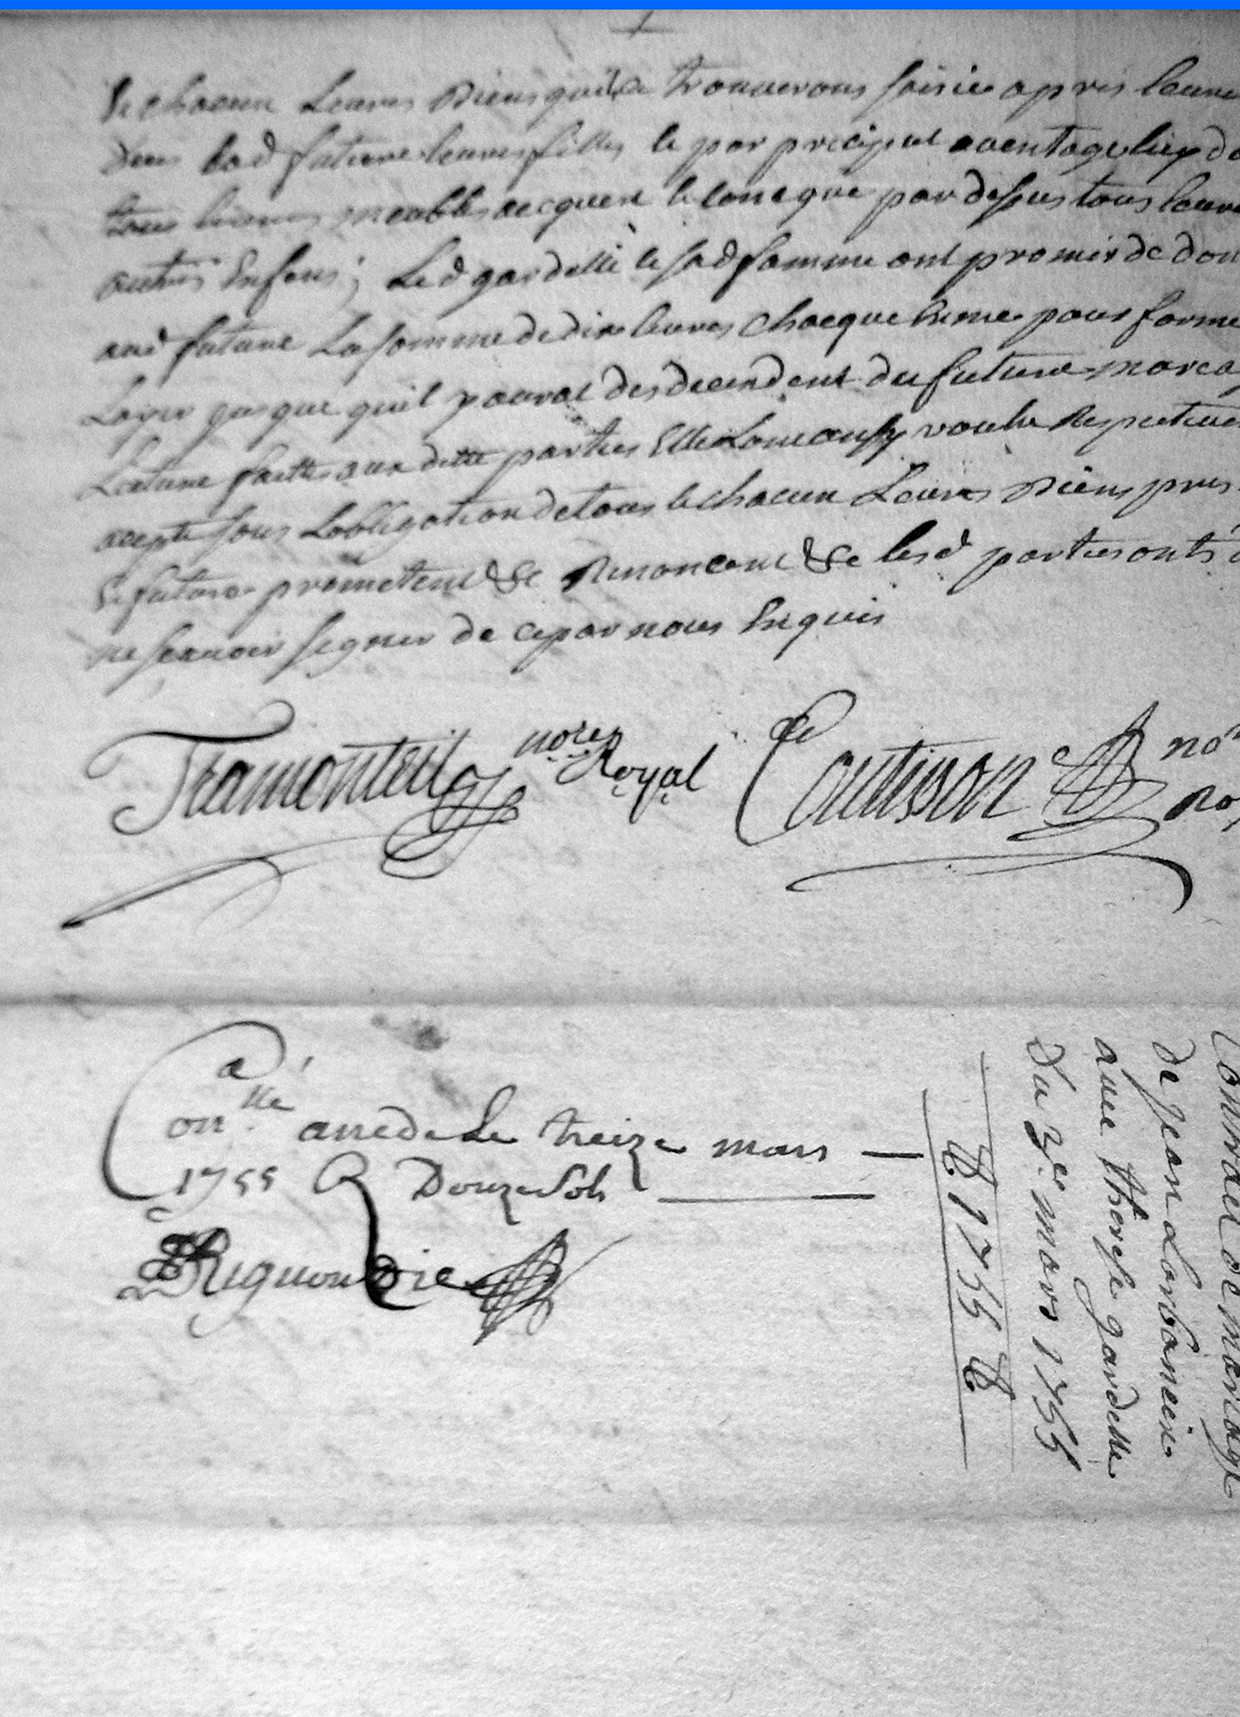 & chacun leures Biens quil se trouverons saisie apres leure
deus lad future leures filles le par preciput aventage lieg de
tous leures meubles acquest & conq que par dessus tous leure
autres Enfens; Led gardelle & sad famme ont promis de don
aud future La somme de dix leures chacque anné pour forme
jusque quil pourat des decendent du future mareag
Lecture faitte aux ditte parties Elle Lons ainsy voulu Respective
acepté sous Lobligation de tous & chacun Leures Biens pres
& future prometent &c Renoncent &c lesd parties ont d
ne scavoir segner de ce par nous Enquis
Tramonteil nore Royal
Coutisson no
Ro
Conllé a anede Le treize mars
1755 R Douze sols
Rigoundie
Contract de mariage
de Jean Lonbancin
avec Therese gardelle
du 2e mars 1755
& 1755 &